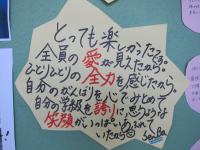 とっても楽しかったってる。
全員の愛が見えたから。
ひとりひとりの全力を感じたから。
自分のがんばりを心でみとめて
自分の学級を誇りに思うような
笑顔がいっぱいあふれて
いたから